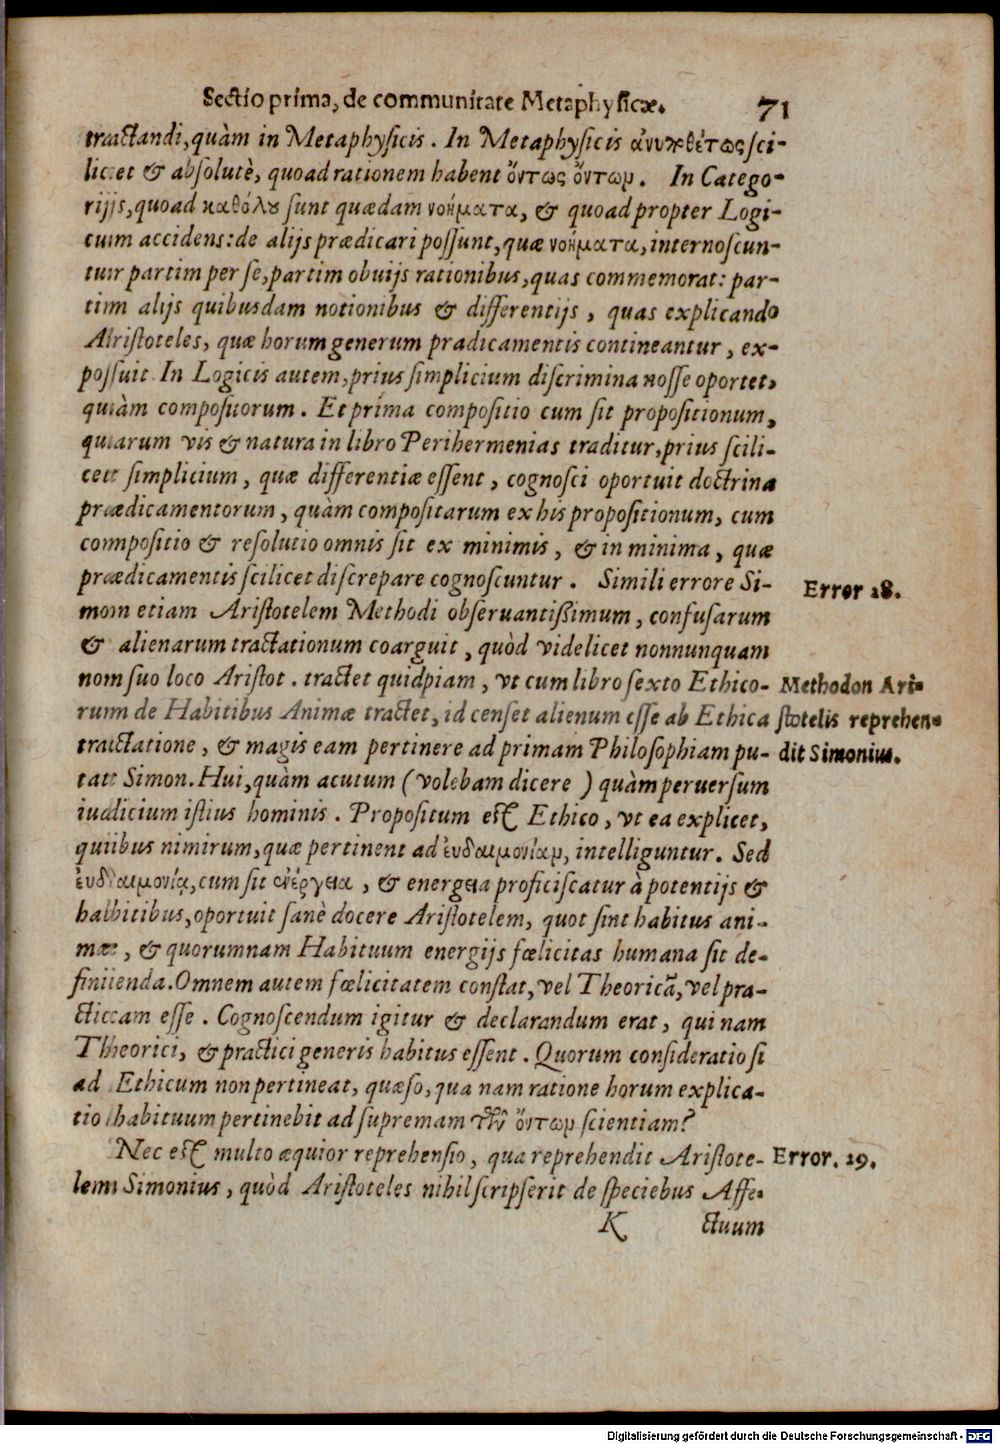 Sectio prima, de communitate Metaphysicæ. 71
tractandi, quàm in Metaphysicis. In Metaphysicis ἀνυποθέτως sci-
licet & absolutè, quoad rationem habent ὄντως ὄντων. In Catego-
rijs, quoad καθόλου sunt quædam νοήματα, & quoad propter Logi-
cum accidens: de alijs prædicari possunt, quæ νοήματα, internoscun-
tur partim per se, partim obuijs rationibus, quas commemorat: par-
tim alijs quibusdam notionibus & differentijs, quas explicando
Aristoteles, quæ horum generum prædicamentis contineantur, ex-
posuit. In Logicis autem, prius simplicium discrimina nosse oportet,
quàm compositorum. Et prima compositio cum sit propositionum,
quarum vis & natura in libro Perihermenias traditur, prius scili-
cet simplicium, quæ differentiæ essent, cognosci oportuit doctrina
prædicamentorum, quàm compositarum ex his propositionum, cum
compositio & resolutio omnis sit ex minimis, & in minima, quæ
prædicamentis scilicet discrepare cognoscuntur. Simili errore Si-
mon etiam Aristotelem Methodi obseruantißimum, confusarum
& alienarum tractationum coarguit, quòd videlicet nonnunquam
non suo loco Aristot. tractet quidpiam, vt cum libro sexto Ethico-
rum de Habitibus Animæ tractet, id censet alienum esse ab Ethica
tractatione, & magis eam pertinere ad primam Philosophiam pu-
tat Simon. Hui, quàm acutum (volebam dicere) quàm peruersum
iudicium istius hominis. Propositum est Ethico, vt ea explicet,
quibus nimirum, quæ pertinent ad ἐυδαιμονίαν, intelliguntur. Sed
ἐυδαιμονία, cum sit ἐνέργεια, & energeia proficiscatur à potentijs &
habitibus, oportuit sanè docere Aristotelem, quot sint habitus ani-
mæ, & quorumnam Habituum energijs fœlicitas humana sit de-
finienda. Omnem autem fœlicitatem constat, vel Theoricã, vel pra-
cticam esse. Cognoscendum igitur & declarandum erat, qui nam
Theorici, & practici generis habitus essent. Quorum consideratio si
ad Ethicum non pertineat, quæso, qua nam ratione horum explica-
tio habituum pertinebit ad supremam τῶν ὄντων scientiam?
Nec est multo æquior reprehensio, qua reprehendit Aristote-
lem Simonius, quòd Aristoteles nihil scripserit de speciebus Affe-
K ctuum
Error 18.
Methodon Ari-
stotelis reprehen-
dit Simonius.
Error. 19.
Digitalisierung gefördert durch die Deutsche Forschungsgemeinschaft - DFG